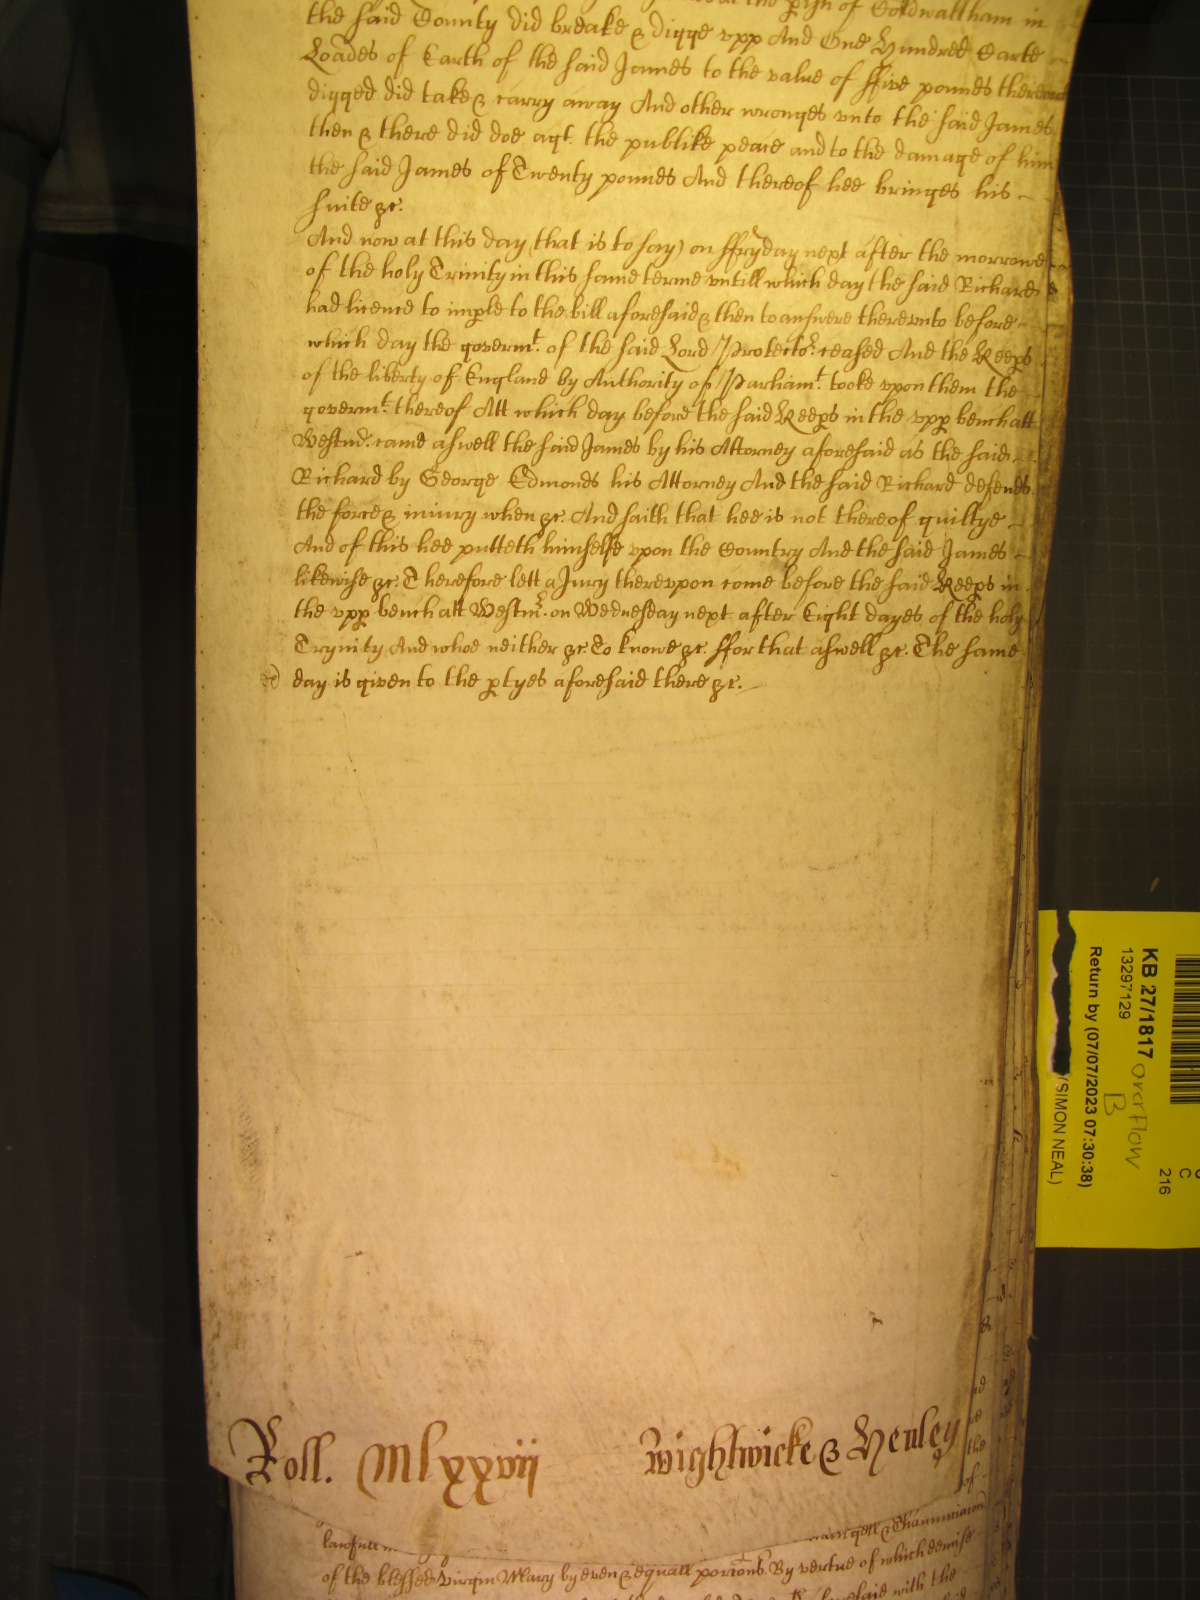 at the pish of Coldwaltham in
the said County did breake & digge vpp And One Hundred Carte
Loades of Earth of the said James to the value of ffive pounds there
digged did take & carry away And other wronges vnto the said James
then & there did doe agt. the publike peace and to the damage of him
the said James of Twenty pounds And thereof hee bringes his
suite &c.
And now at this day (that is to say) on ffryday next after the morrowe
of the holy Trinity in this same terme vntill which day the said Richard
had licence to imple to the bill aforesaid & then to answere therevnto before
which day the governt. of the said Lord Protector. ceased And the Keeps
of the liberty of England by Authority of Parliamt. tooke vpon them the
governt. thereof Att which day before the said Keeps in the vpp bench att
Westm. came aswell the said James by his Attorney aforesaid as the said
Richard by George Edmonds his Attorney And the said Richard defends
the force & iniury when &c. And saith that hee is not thereof guiltye
And of this hee putteth himselfe vpon the Country And the said James
likewise &c. Therefore lett a Jury therevpon come before the said Keeps in
the vpp bench att Westmr. on Wednesday next after Eight dayes of the holy
Trynity And whoe neither &c. To knowe &c. ffor that aswell &c. The same
day is given to the ptyes aforesaid there &c.
Roll. Mlxxvij Wightwicke & Henley
lawfull
of the blessed Virgin Mary by even & equall portons. By vertue of which demise
with the
KB 27/1817 overflow
13297129 B
Return by (07/07/2023 07:30:38)
(SIMON NEAL)
C
216